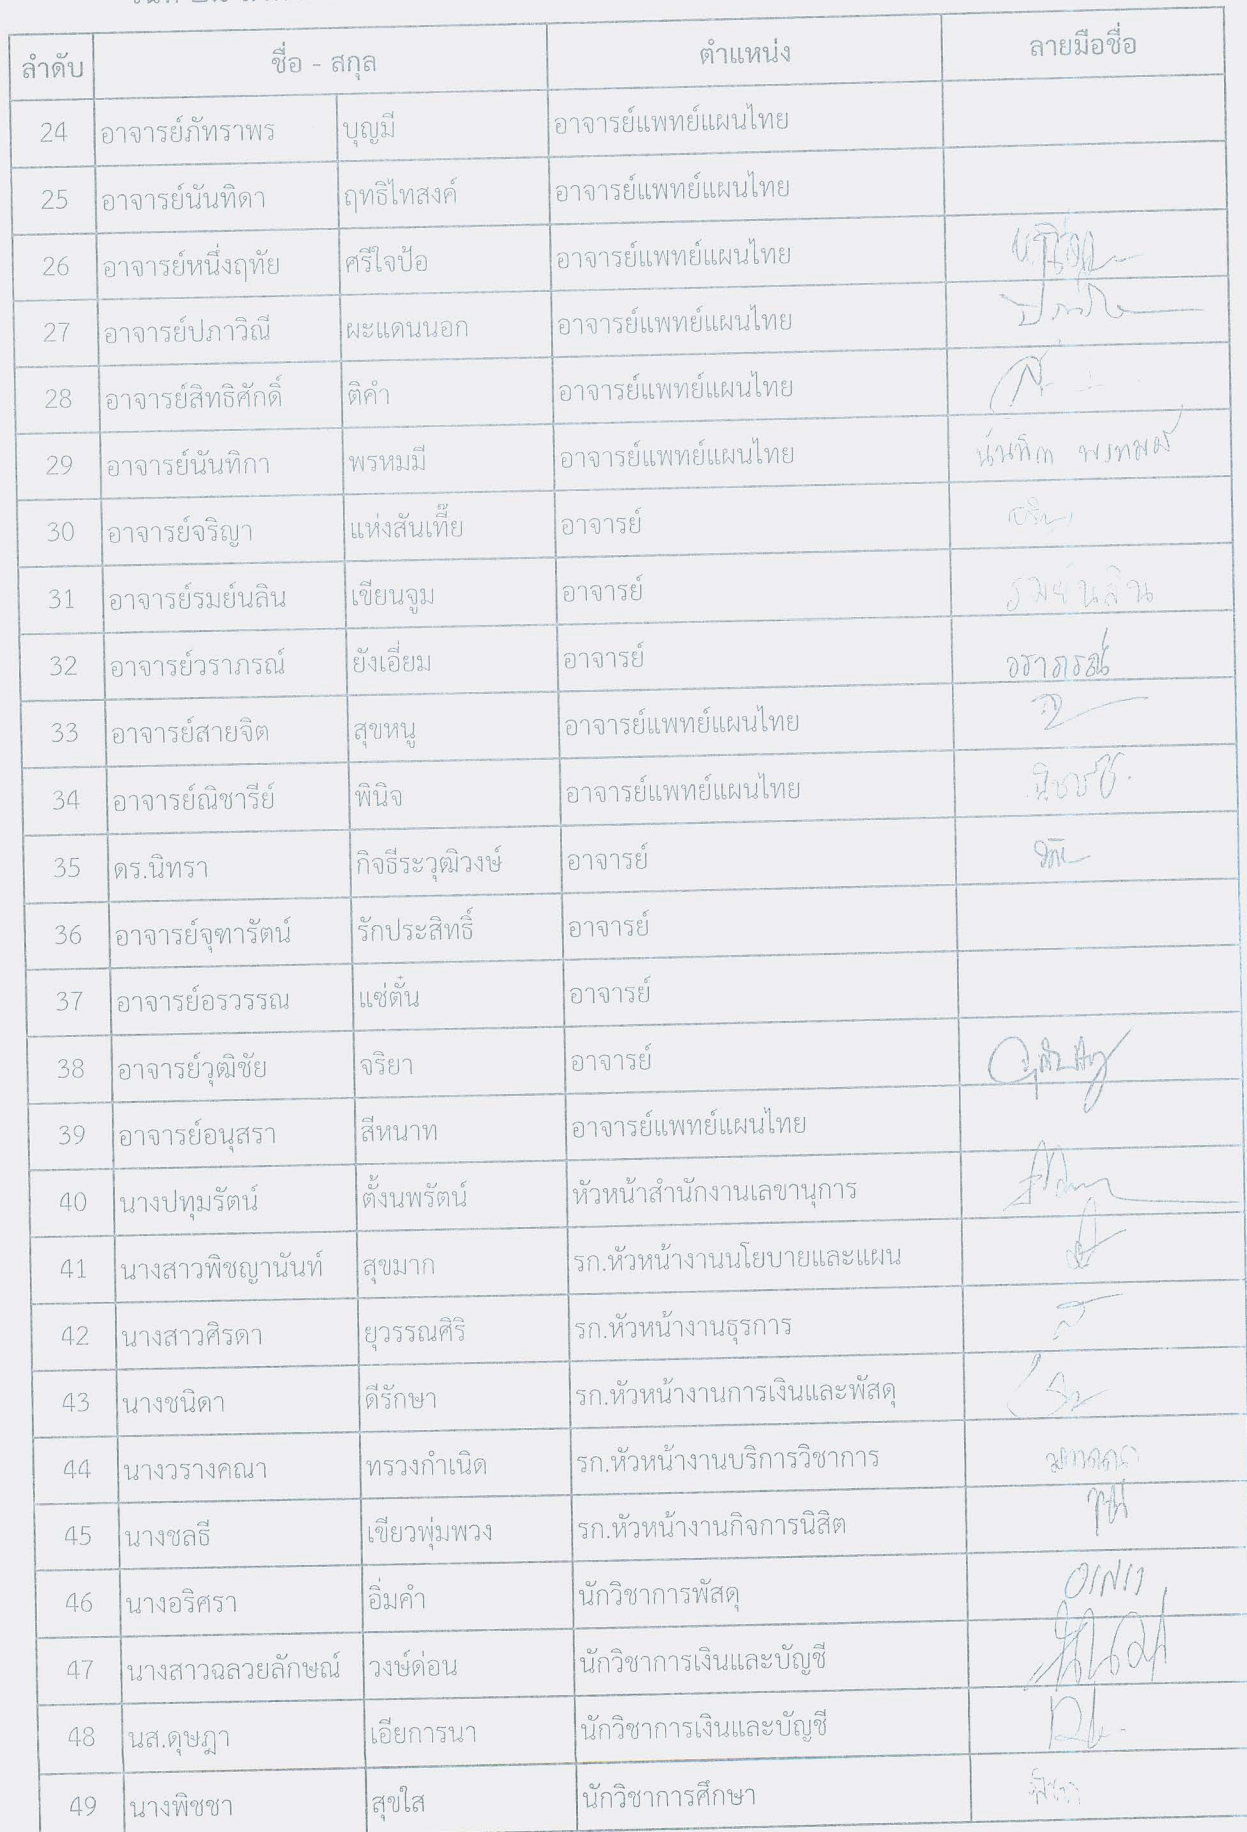 ลำดับ ชื่อ - สกุล ตำแหน่ง ลายมือชื่อ
24 อาจารย์ภัทราพร บุญมี อาจารย์แพทย์แผนไทย
25 อาจารย์นันทิดา ฤทธิไทสงค์ อาจารย์แพทย์แผนไทย
26 อาจารย์หนึ่งฤทัย ศรีใจป้อ อาจารย์แพทย์แผนไทย
27 อาจารย์ปภาวิณี ผะแดนนอก อาจารย์แพทย์แผนไทย
28 อาจารย์สิทธิศักดิ์ ติคำ อาจารย์แพทย์แผนไทย
29 อาจารย์นันทิกา พรหมมี อาจารย์แพทย์แผนไทย นันทิกา พรหมมี
30 อาจารย์จริญา แห่งสันเที๊ย อาจารย์
31 อาจารย์รมย์นลิน เขียนจูม อาจารย์ รมย์นลิน
32 อาจารย์วราภรณ์ ยังเอี่ยม อาจารย์ วราภรณ์
33 อาจารย์สายจิต สุขหนู อาจารย์แพทย์แผนไทย
34 อาจารย์ณิชารีย์ พินิจ อาจารย์แพทย์แผนไทย
35 ดร.นิทรา กิจธีระวุฒิวงษ์ อาจารย์
36 อาจารย์จุฑารัตน์ รักประสิทธิ์ อาจารย์
37 อาจารย์อรวรรณ แซ่ตั๋น อาจารย์
38 อาจารย์วุฒิชัย จริยา อาจารย์
39 อาจารย์อนุสรา สีหนาท อาจารย์แพทย์แผนไทย
40 นางปทุมรัตน์ ตั้งนพรัตน์ หัวหน้าสำนักงานเลขานุการ
41 นางสาวพิชญานันท์ สุขมาก รก.หัวหน้างานนโยบายและแผน
42 นางสาวศิรดา ยุวรรณศิริ รก.หัวหน้างานธุรการ
43 นางชนิดา ดีรักษา รก.หัวหน้างานการเงินและพัสดุ
44 นางวรางคณา ทรวงกำเนิด รก.หัวหน้างานบริการวิชาการ
45 นางชลธี เขียวพุ่มพวง รก.หัวหน้างานกิจการนิสิต
46 นางอริศรา อิ่มคำ นักวิชาการพัสดุ
47 นางสาวฉลวยลักษณ์ วงษ์ด่อน นักวิชาการเงินและบัญชี
48 นส.ดุษฎา เอียการนา นักวิชาการเงินและบัญชี
49 นางพิชชา สุขใส นักวิชาการศึกษา